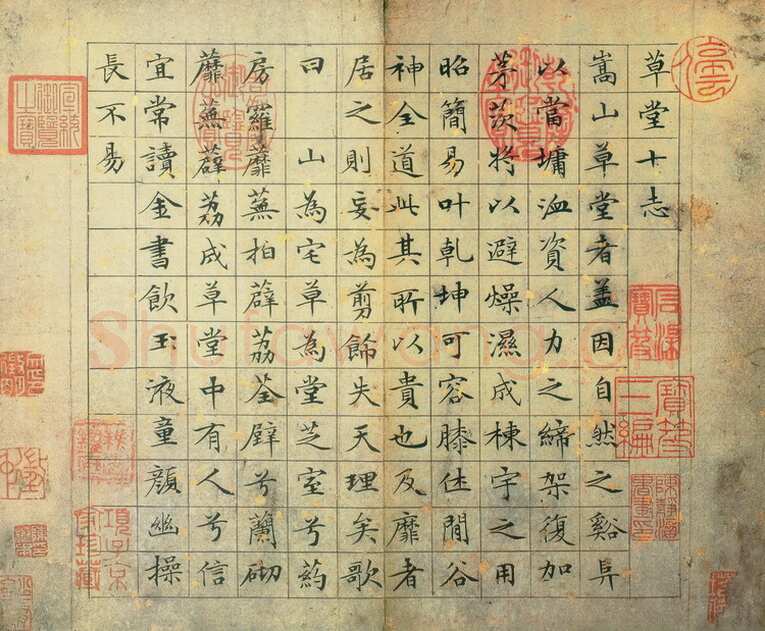 草堂十志
嵩山草堂者盖因自然之谿阜
以當墉洫資人力之締架復加
茅茨將以避燥濕成棟宇之用
昭簡易叶乾坤可容膝休閒谷
神全道此其所以貴也及靡者
居之則妄為剪餙失天理矣歌
曰 山為宅草為堂芝室兮葯
房羅蘼蕪拍薜荔荃壁兮蘭砌
蘼蕪薜荔成草堂中有人兮信
宜常讀金書飲玉液童顏幽操
長不易
石渠寶笈
寶笈三編
項子京家珍藏